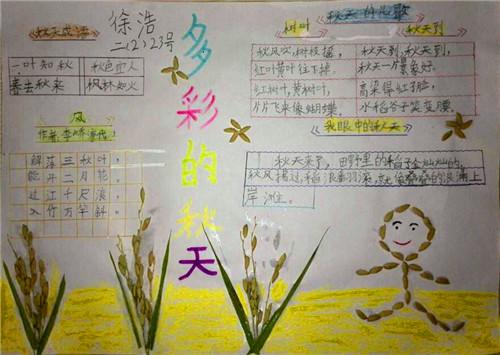 秋天成语
徐浩
二(2)23号
一叶知秋 秋色宜人
春去秋来 枫林如火
风
作者:李峤(唐代)
解落三秋叶,
能开二月花。
过江千尺浪,
入竹万竿斜。
多彩的秋天
秋天的儿歌
树叶
秋风吹,树枝摇,
红叶黄叶往下掉。
红树叶,黄树叶,
片片飞来像蝴蝶。
秋天到
秋天到,秋天到,
秋天一片景象好。
高粱得红脸,
水稻谷子笑弯腰。
我眼中的秋天
秋天来了,田野里的稻子金灿灿的,
秋风